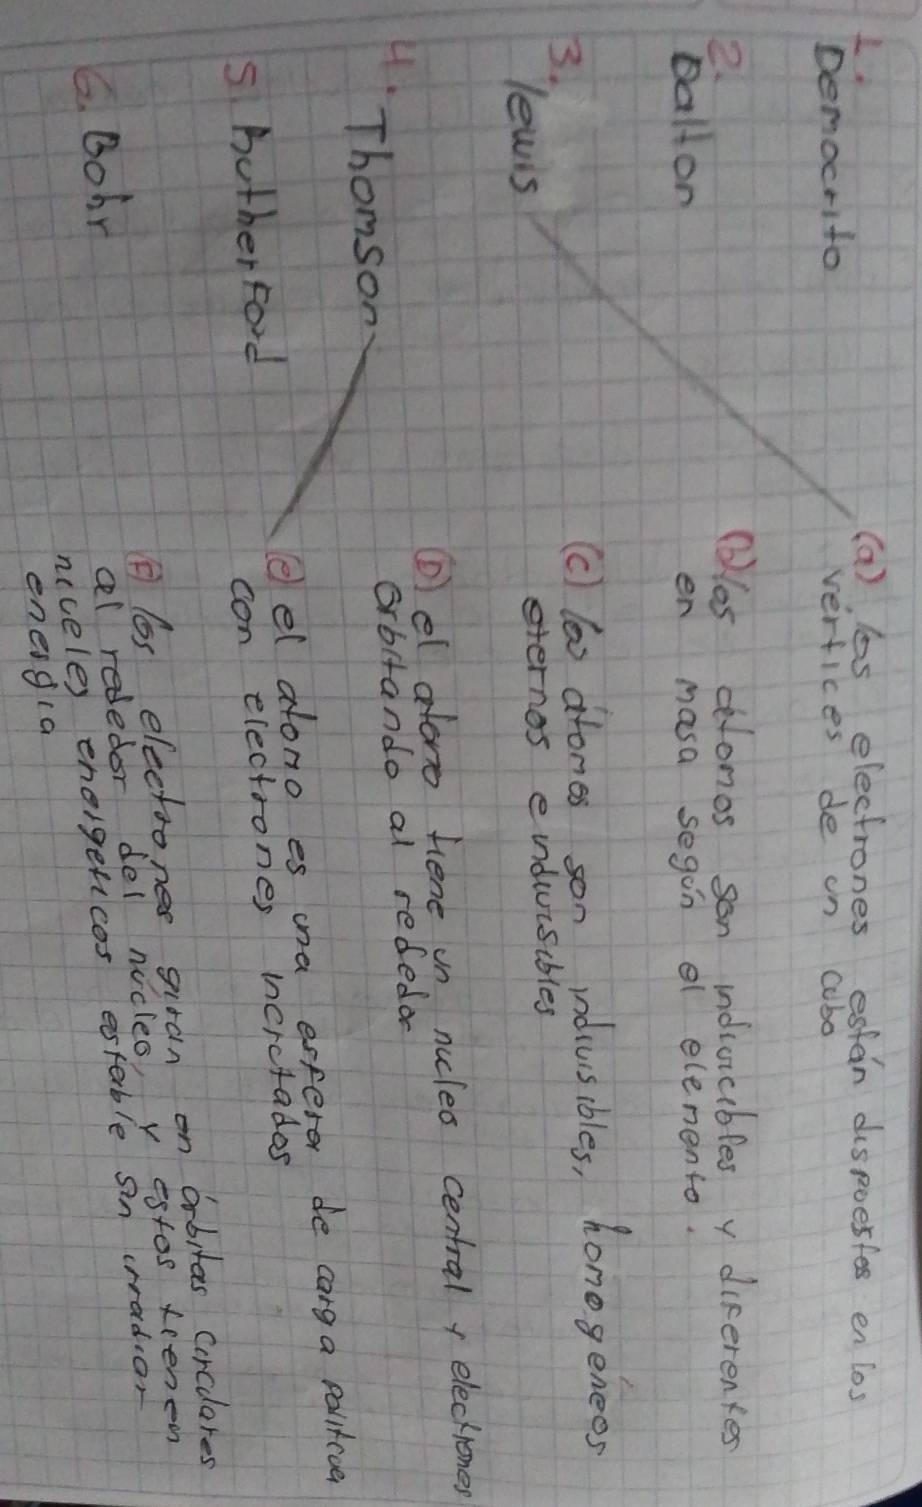 1.
Democrito
2.
Dalton
3.
lewis
4. Thomson
5. Rutherford
6. Bohr
(a) los electrones están dispuestos en los
vértices de un cubo
(b) los átomos son indivicibles y diferentes
en masa según el elemento.
(c) los átomos son indivisibles, homogéneos
eternos e indivisibles
(D) el atomo tiene un nucleo central y electrones
orbitando al rededor
(e) el atomo es una esfera de carga politiva
con electrones incrutados
(F) los electrones giran en órbitas circulares
al rededor del núcleo, y estos tienen
niveles energeticos estable sin irradiar
energia